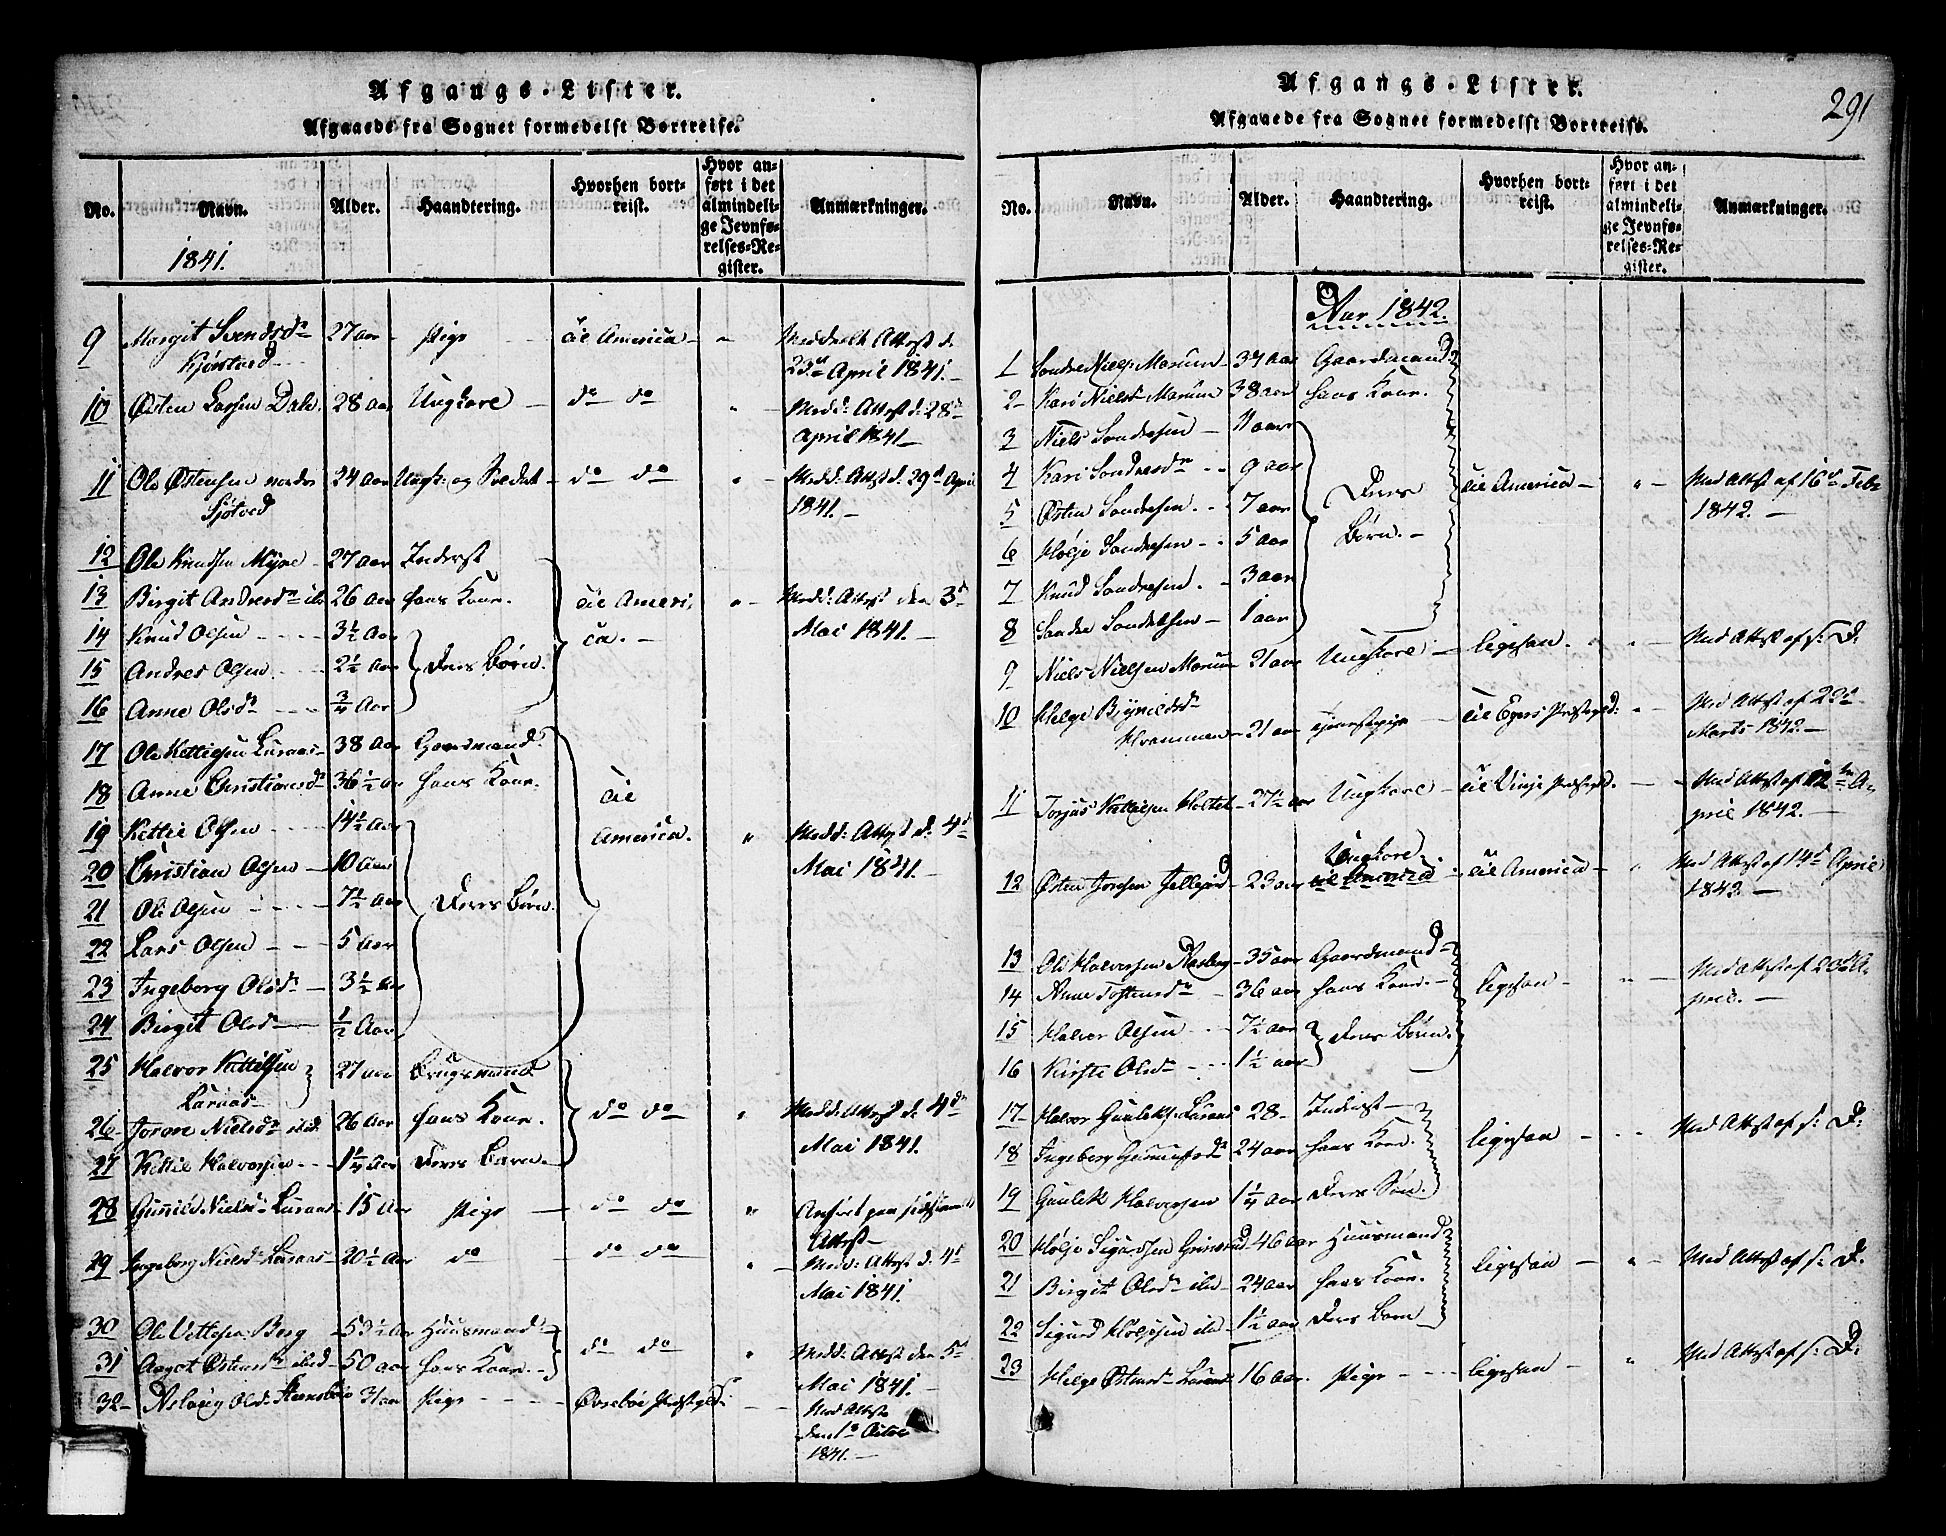 Afgangs-Lister.
Afgaaede fra Sognet formedelst Bortreise.
No. Navn. Alder. Haandtering. Hvorhen bortreist. Hvor anført i det almindelige Jevnførelses-Register. Anmærkninger.
1841.
9 Margit Svendsdr 27 aar Pige til America Meddelt Attest d.
Kjøstved 23de April 1841.
10 Østen Larsen Dale 28 aar Ungkarl do do Medd: Attest d. 28de
April 1841
11 Ole Østensen nordre 24 Aar Ungk: og Soldat do do Medd: Attest d. 29d April
Sjøtved 1841.
12 Ole Knudsen Myre 27 Aar Inderst
13 Birgit Andersdr ibd 26 Aar hans Kone. til Ameri- Medd: Attest den 3d
14 Knud Olsen 3½ Aar ca. Mai 1841.
15 Andres Olsen 2½ Aar Deres Børn.
16 Anne Olsdr ¾ Aar
17 Ole Kettilsen Luraas 38 Aar Gaardmand
18 Anne Christiansdr 36½ Aar hans Kone. til
19 Kettil Olsen 14½ Aar America. Medd: Attest d. 4d
20 Christian Olsen 10 Aar Mai 1841.
21 Ole Olsen 7½ Aar Deres Børn.
22 Lars Olsen 5 Aar
23 Ingeborg Olsdr 3½ Aar
24 Birgit Olsd ½ Aar
25 Halvor Kittilsen 27 aar Brugsmand
Luraas
26 Joran Nielsdr ibid. 26 Aar hans Kone. do do Medd: Attest d. 4de
27 Kittil Halvorsen 1¼ Aar Deres Barn. Mai 1841.
28 Gunild Nielsd: Luraas 15 Aar Pige do do Anført paa sidstn.
Attest
29 Ingeborg Nielsd: Luraas 20½ Aar do do do Medd: Attest d. 4d
Mai 1841.
30 Ole Vetlesen Berg 53½ Aar Huusmand
31 Aagot Østensdr ibid 50 aar hans Kone. do do Medd: Attest den 5d
Mai 1841.
32 Aslaug Olsd: 31 aar Pige Øvrebøe Præstegjeld. Med Attest
1841.
Afgangs-Lister.
291
Afgaaede fra Sognet formedelst Bortreise.
No. Navn. Alder. Haandtering. Hvorhen bortreist. Hvor anført i det almindelige Jevnførelses-Register. Anmærkninger.
Aar 1842.
1 Sondre Niels: Marum 37 aar Gaardmand
2 Kari Nielsd Marum 38 aar hans Kone.
3 Niels Sondresen 11 aar
4 Kari Sondresdr 9 aar
5 Østen Sondresen 7 aar Deres til America Med Attest af 16de Febr
6 Hølje Sondresen 5 aar Børn. 1842.
7 Knud Sondresen 3 aar
8 Sondre Sondresen 1 aar
9 Niels Nielsen Marum 21 aar Ungkarl ligesaa. Med Attest af s: D.
10 Helge Brynildsd
Hvammen 21 aar tjenestepige til Egers Præstegjd: Med Attest af 23d
Marts 1842.
11 Torjus Kittilsen Holtet 27½ aar Ungkarl til Vinje Præstegjd. Med Attest af 12te A-
pril 1842.
12 Østen Jonsen 23 aar Ungkarl til America til America Med Attest af 14d April
1842.
13 Ole Halvorsen 35 aar Gaardmand
14 Anne Tostensdr 36 aar hans Kone. ligesaa Med Attest af 20de A-
pril.
15 Halvor Olsen 7½ aar Deres Børn.
16 Kirsti Olsdr 1½ aar
17 Halvor Gunleiks: Luraas 28 Inderst
18 Ingeborg Gunnulfsdr 24 aar hans Kone. ligesaa Med Attest af s: D:
19 Gunleik Halvorsen 1¼ aar Deres Søn.
20 Hølje Sigurdsen Grimsrud 46 aar Huusmand
21 Birgit Olsdr ibd 24 aar hans Kone. ligesaa Med Attest af s: D.
22 Sigurd Høljesen ibd 1½ aar Deres Barn
23 Helge Østensd: Luraas 16 aar. Pige ligesaa Med Attest af s: D.